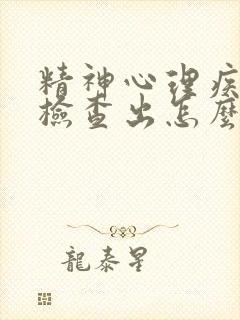 精神心理疾
檢查出怎麼
龍泰星